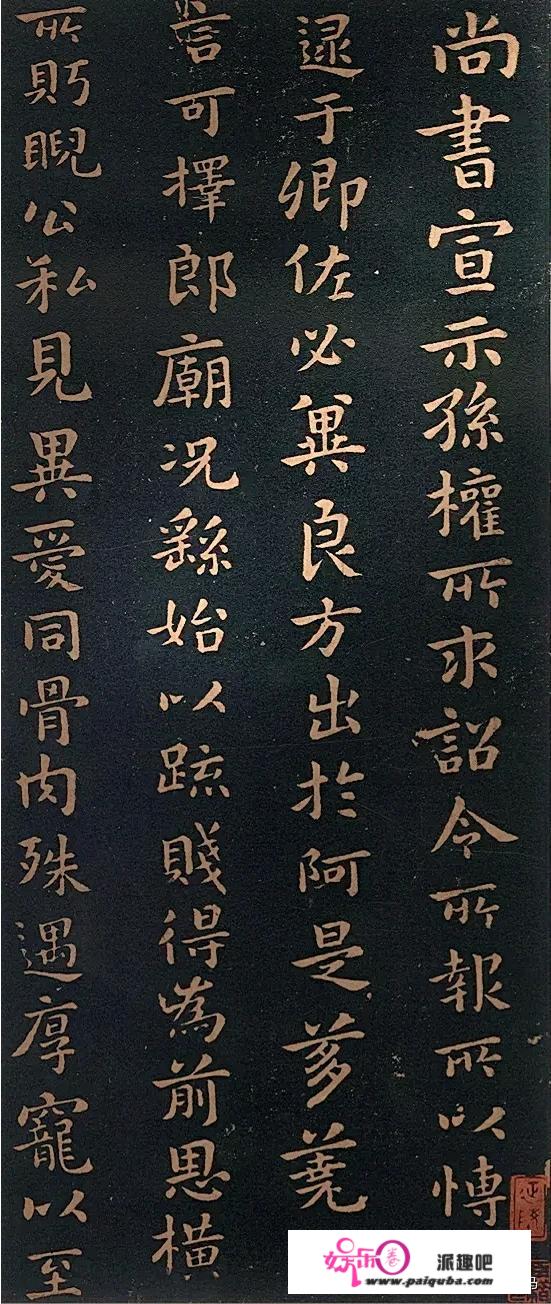 尚書宣示孫權所求詔令所報所以愽
逮于卿佐必冀良方出於阿是芻蕘
言可擇郎廟況繇始以疏賤得為前恩橫
所眄睨公私見異愛同骨肉殊遇厚寵以至
娱乐圈 派趣吧
www.paiquba.com